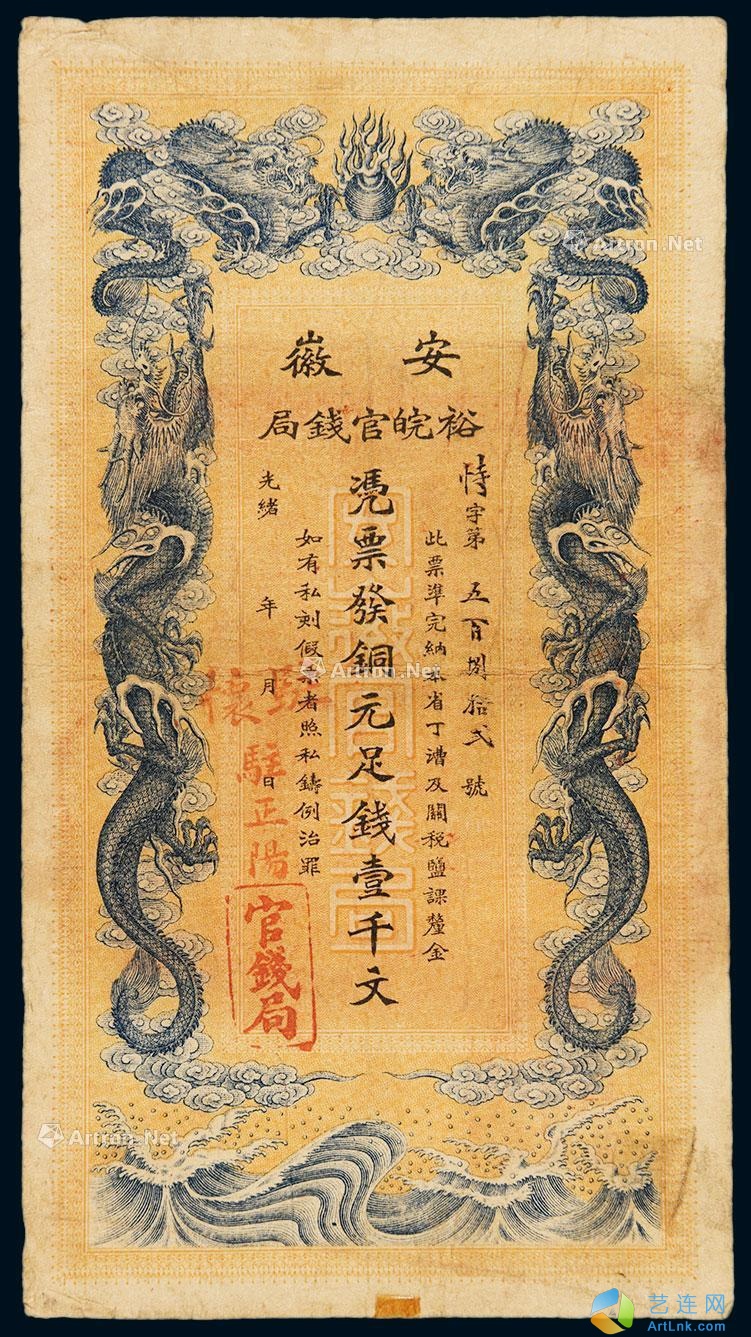 安徽
裕皖官錢局
字第五百捌拾弍號
此票準完納本省丁漕及關稅鹽課釐金
憑票發銅元足錢壹千文
如有私刻假票者照私鑄例治罪
光緒 年 月 日
懷
駐正陽
官錢局
Artron.Net
Artron.Net
Artron.Net
艺连网
ArtLnk.com